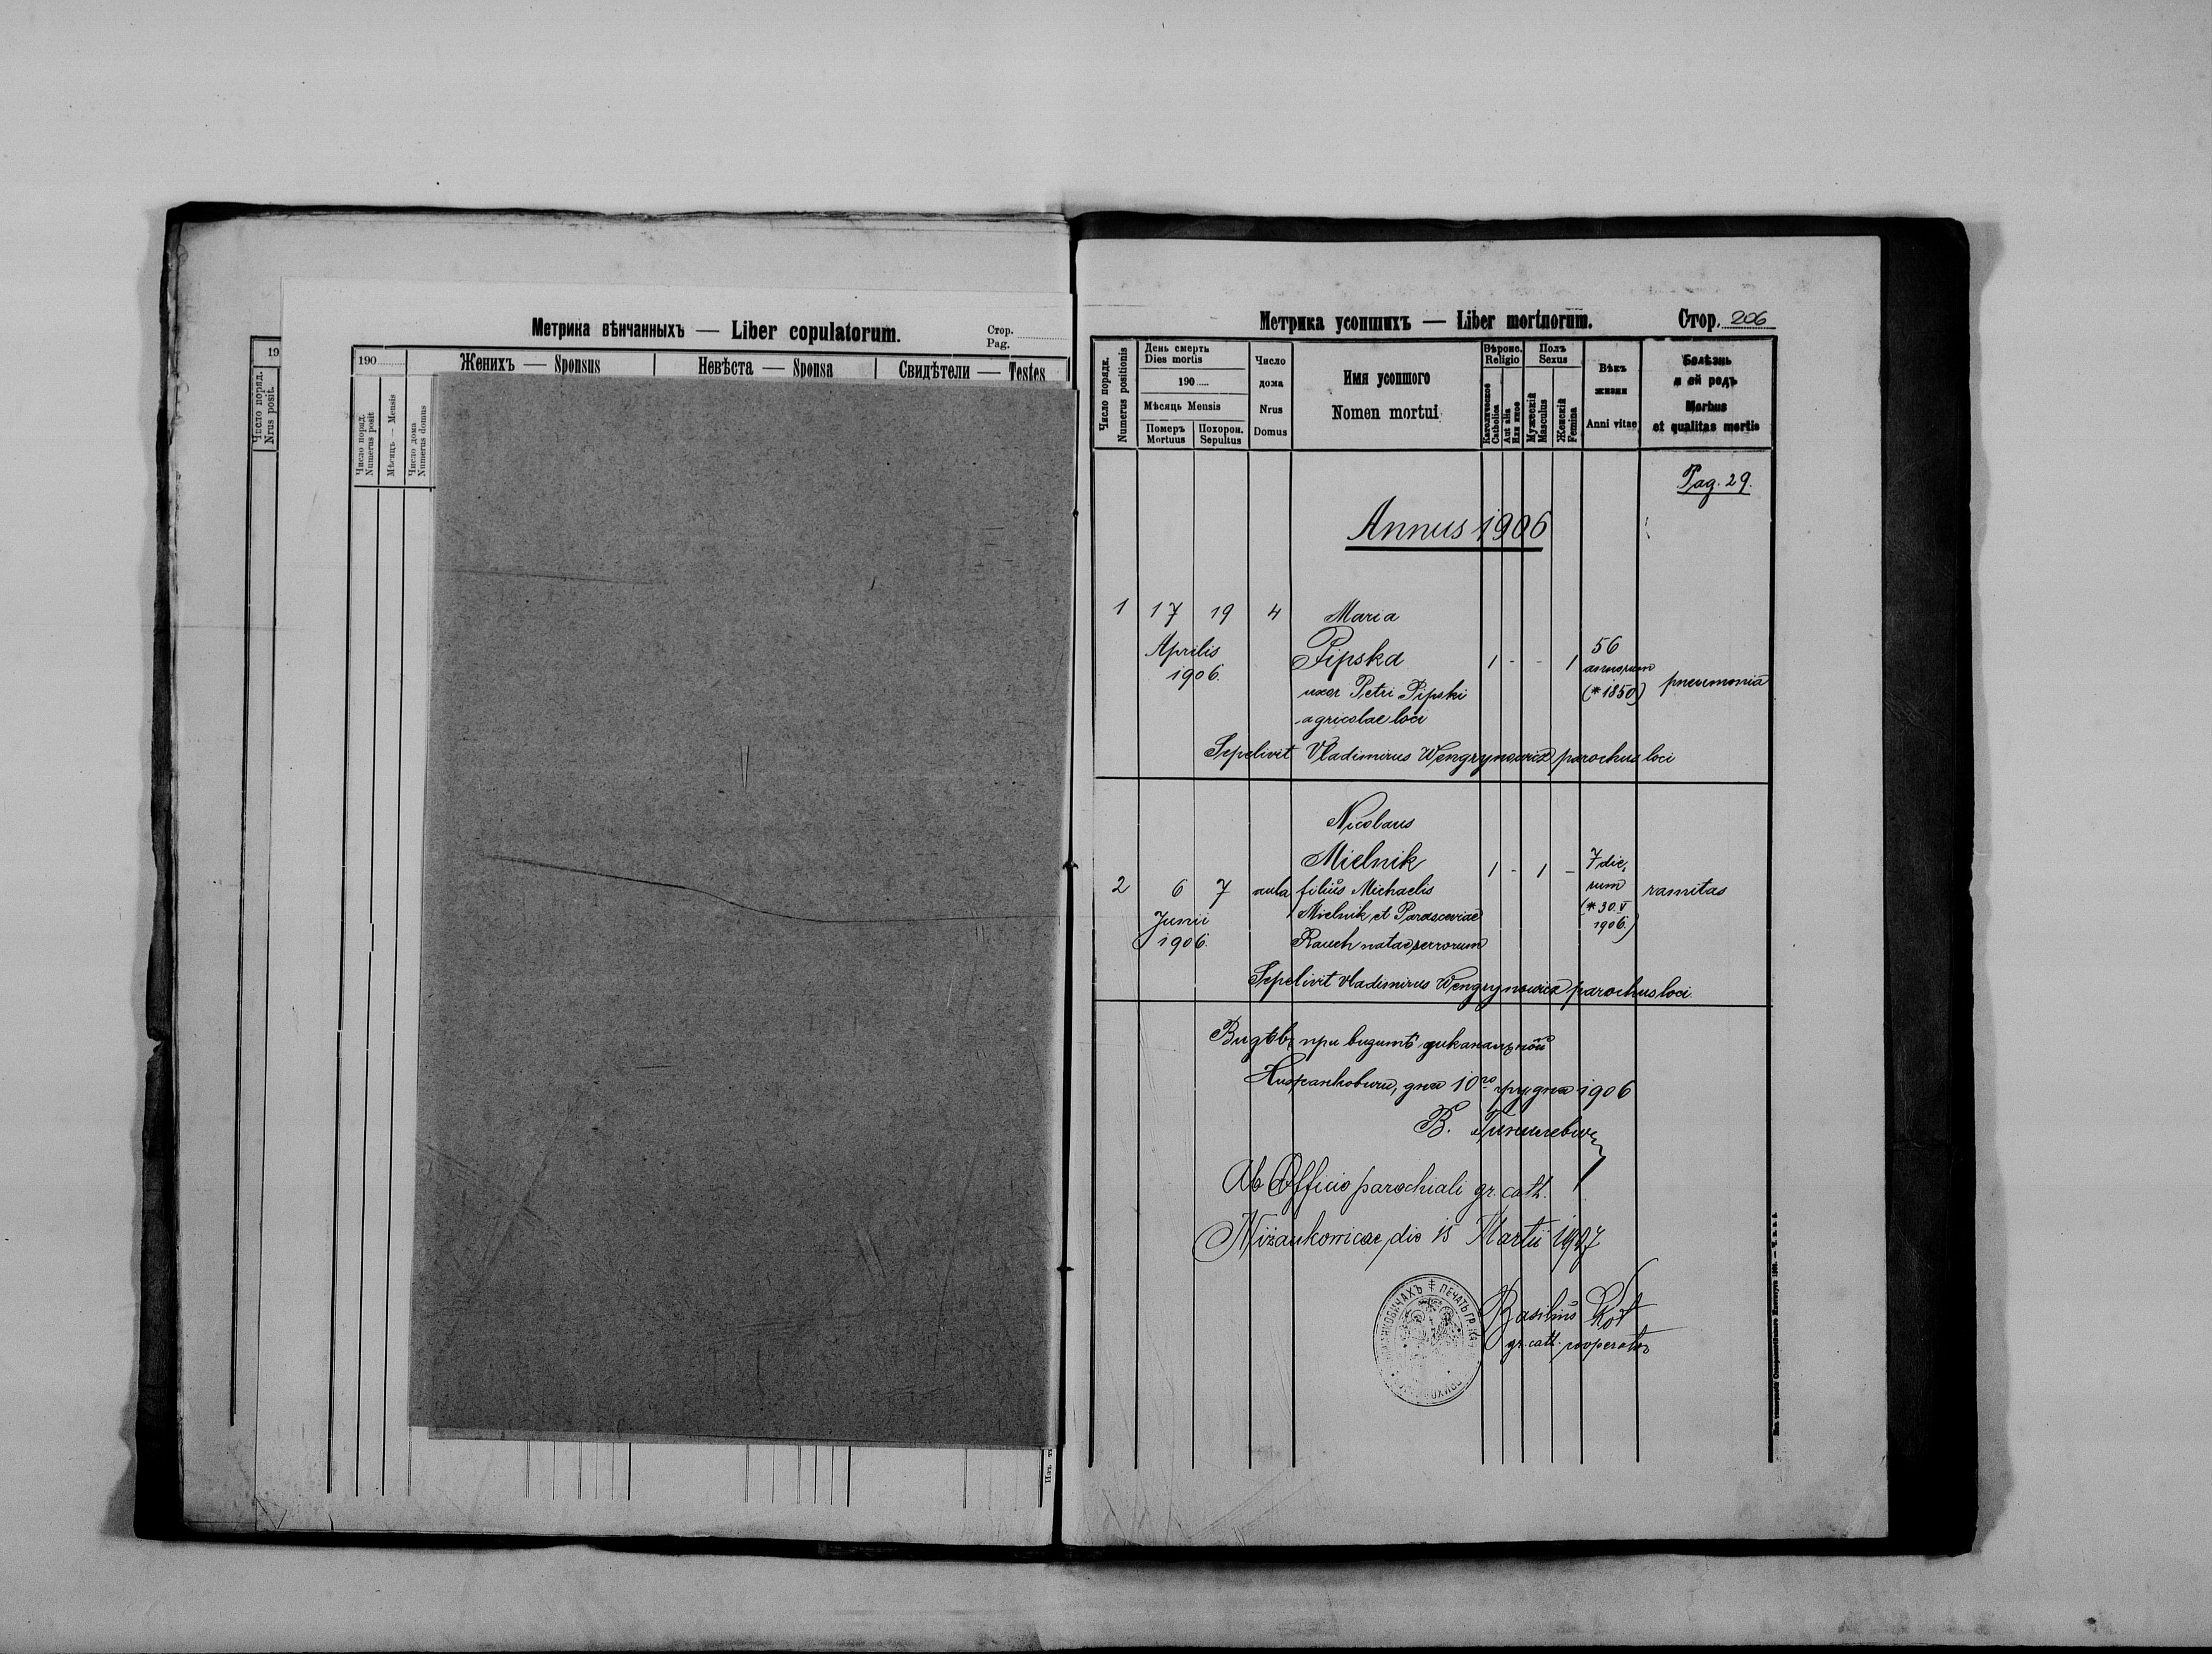 Метрика вѣнчанныхъ — Liber copulatorum.
Стор.
Pag.
19
Число поряд.
Nrus posit.
190
Женихъ — Sponsus
Невѣста — Sponsa
Свидѣтели — Testes
Число поряд.
Numerus posit
Мѣсяць — Mensis
Число дома
Numerus domus
Метрика усопшихъ — Liber mortuorum.
Стор. 206
Число порядк.
Numerus positionis
День смерть
Dies mortis
190
Мѣсяць Mensis
Померъ
Mortuus
Похорон.
Sepultus
Число
дома
Nrus
Domus
Имя усопшого
Nomen mortui
Вѣроис.
Religio
Католическое
Catholica
Aut alia
Или иное
Полъ
Sexus
Мужескій
Masculus
Женскій
Femina
Вѣкъ
жизни
Anni vitae
Болѣзнь
и ей родъ
Morbus
et qualitas mortis
Pag. 29.
Annus 1906
1 17 19 4 Maria
Aprilis
1906.
Pipska 1 - - 1
56
annorum
(*1850)
pneumonia
uxor Petri Pipski
agricolae loci
Sepelivit Vladimirus Wengrynowicz parochus loci
Nicolaus
Mielnik 1 - 1 -
7 die,
rum
(*30.V
1906.)
2 6 7 aula filius Michaelis vanitas
Junii
1906.
Mielnik et Parasceviae
Rauch natae servorum
Sepelivit Vladimirus Wengrynowicz parochus loci.
при визитѣ диканальной
дня 10го грудня 1906
В.
Ab Officio parochiali gr. cath.
Niżankowicae, die 15 Martii 1907
Basilius Kot
gr. cath. cooperator
ПЕЧАТЬ ГР.